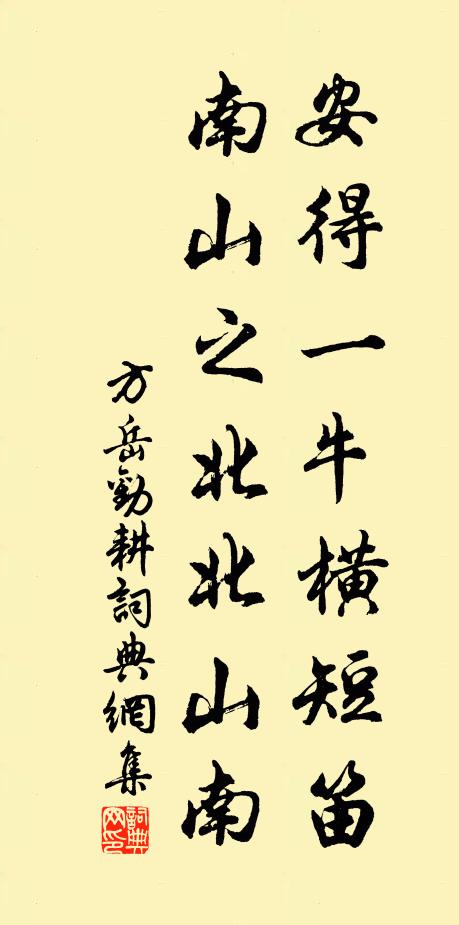 安得一牛橫短笛
南山之北北山南
方岳勸耕詞典網集
詞典
网印